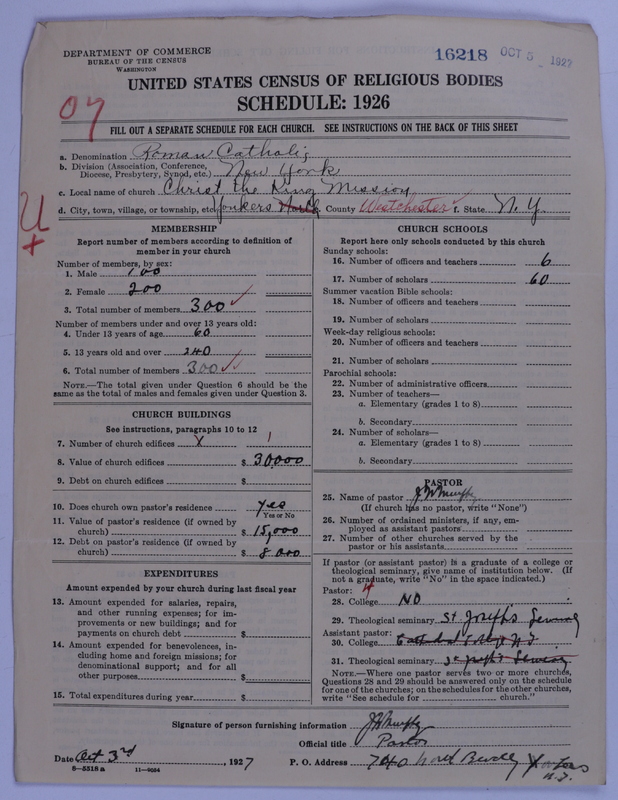 DEPARTMENT OF COMMERCE
BUREAU OF THE CENSUS
WASHINGTON
16218 OCT 5 1927
UNITED STATES CENSUS OF RELIGIOUS BODIES
SCHEDULE: 1926
FILL OUT A SEPARATE SCHEDULE FOR EACH CHURCH. SEE INSTRUCTIONS ON THE BACK OF THIS SHEET
a. Denomination Roman Catholic
b. Division (Association, Conference, Diocese, Presbytery, Synod, etc.) New York
c. Local name of church Christ the King Mission
d. City, town, village, or township, etc. Yonkers County Westchester f. State N.Y.
MEMBERSHIP
Report number of members according to definition of
member in your church
Number of members, by sex:
1. Male 100
2. Female 200
3. Total number of members 300
Number of members under and over 13 years old:
4. Under 13 years of age 60
5. 13 years old and over 240
6. Total number of members 300
NOTE.—The total given under Question 6 should be the
same as the total of males and females given under Question 3.
CHURCH BUILDINGS
See instructions, paragraphs 10 to 12
7. Number of church edifices X 1
8. Value of church edifices $ 30,000
9. Debt on church edifices $
10. Does church own pastor's residence yes
Yes or No
11. Value of pastor's residence (if owned by
church) $ 15,000
12. Debt on pastor's residence (if owned by
church) $ 8000
EXPENDITURES
Amount expended by your church during last fiscal year
13. Amount expended for salaries, repairs,
and other running expenses; for im-
provements or new buildings; and for
payments on church debt $
14. Amount expended for benevolences, in-
cluding home and foreign missions; for
denominational support; and for all
other purposes $
15. Total expenditures during year $
CHURCH SCHOOLS
Report here only schools conducted by this church
Sunday schools:
16. Number of officers and teachers 6
17. Number of scholars 60
Summer vacation Bible schools:
18. Number of officers and teachers
19. Number of scholars
Week-day religious schools:
20. Number of officers and teachers
21. Number of scholars
Parochial schools:
22. Number of administrative officers
23. Number of teachers—
a. Elementary (grades 1 to 8)
b. Secondary
24. Number of scholars—
a. Elementary (grades 1 to 8)
b. Secondary
PASTOR
25. Name of pastor J W Murphy
(If church has no pastor, write "None")
26. Number of ordained ministers, if any, em-
ployed as assistant pastors
27. Number of other churches served by the
pastor or his assistants
If pastor (or assistant pastor) is a graduate of a college or
theological seminary, give name of institution below. (If
not a graduate, write "No" in the space indicated.)
Pastor: 4
28. College NO
29. Theological seminary St Josephs
Assistant pastor:
30. College Cathedral College
31. Theological seminary St Josephs
NOTE.—Where one pastor serves two or more churches,
Questions 28 and 29 should be answered only on the schedule
for one of the churches; on the schedules for the other churches,
write "See schedule for church."
Signature of person furnishing information J W Murphy
Official title Pastor
Date Oct 3rd, 1927 P. O. Address 740 North Yonkers
8—5518 a 11—9054 N.Y.